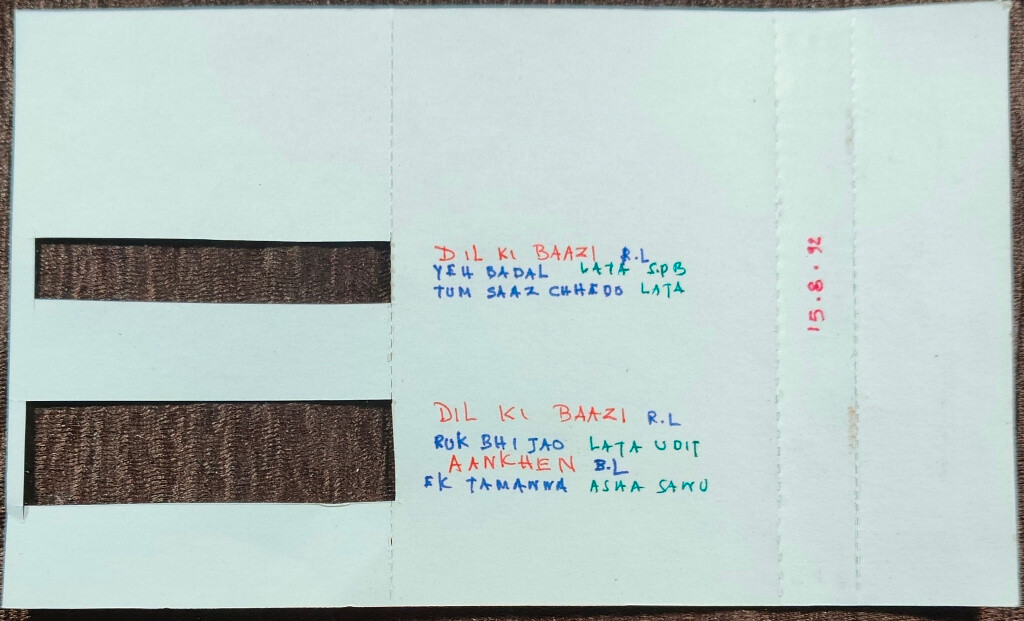 DIL KI BAAZI R.L
YEH BADAL LATA S.P B
TUM SAAZ CHHEDO LATA
15.8.92
DIL KI BAAZI R.L
RUK BHI JAO LATA UDIT
AANKHEN B.L
EK TAMANNA ASHA SANU